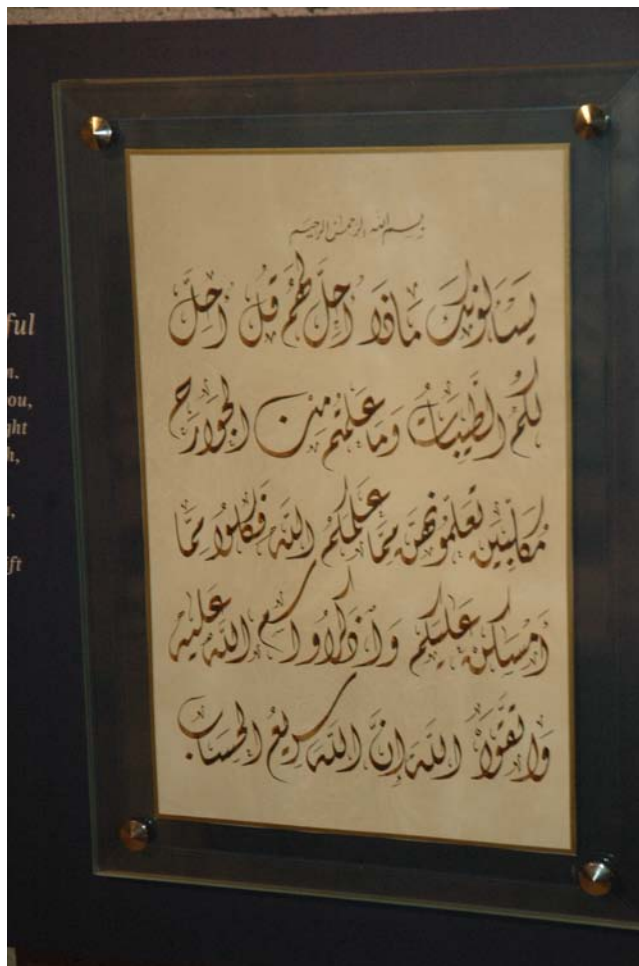 بسم الله الرحمن الرحيم
يَسْأَلُونَكَ مَاذَا أُحِلَّ لَهُمْ قُلْ أُحِلَّ
لَكُمُ الطَّيِّبَاتُ وَمَا عَلَّمْتُم مِّنَ الْجَوَارِحِ
مُكَلِّبِينَ تُعَلِّمُونَهُنَّ مِمَّا عَلَّمَكُمُ اللَّهُ فَكُلُوا مِمَّا
أَمْسَكْنَ عَلَيْكُمْ وَاذْكُرُوا اسْمَ اللَّهِ عَلَيْهِ
وَاتَّقُوا اللَّهَ إِنَّ اللَّهَ سَرِيعُ الْحِسَابِ
ful
n.
ou,
ght
h,
,
ft